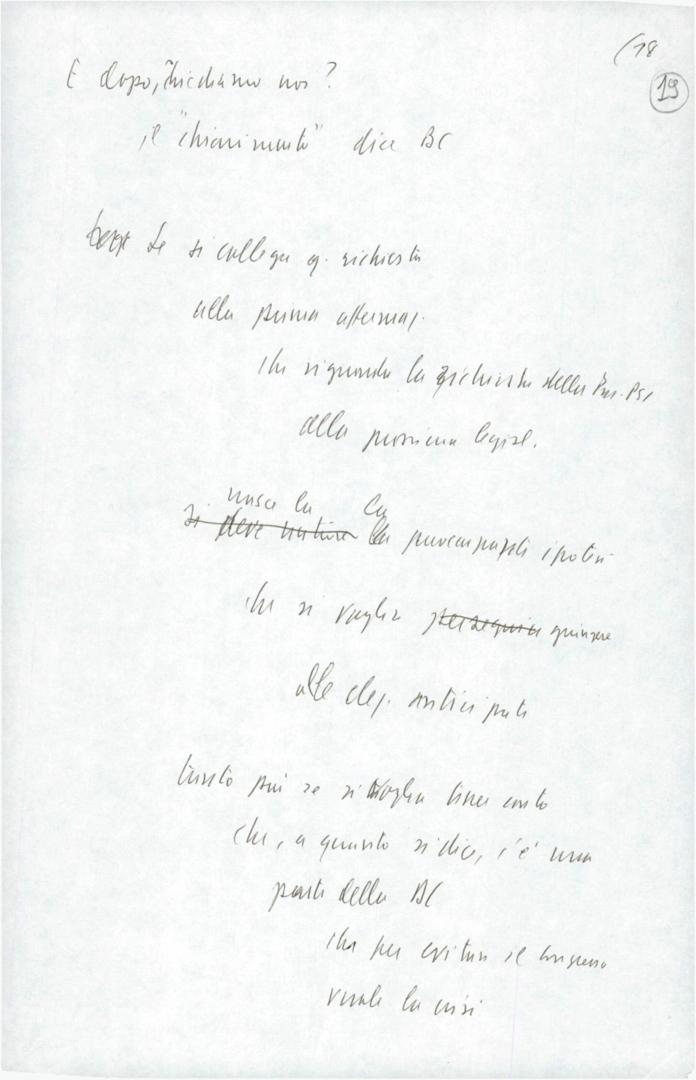 (18
19
E dopo, chiediamo noi?
il "chiarimento" dice BC
Se si collega q. richiesta
alla prima affermaz.
che riguarda la richiesta della Pres. PSI
alla prossima legisl.
nasce la La
si deve la preoccupante ipotesi
che si voglia perseguire giungere
alle elez. anticipate
tanto più se si voglia tener conto
che, a quanto si dice, c'è una
parte della BC
che per evitare il congresso
vuole la crisi